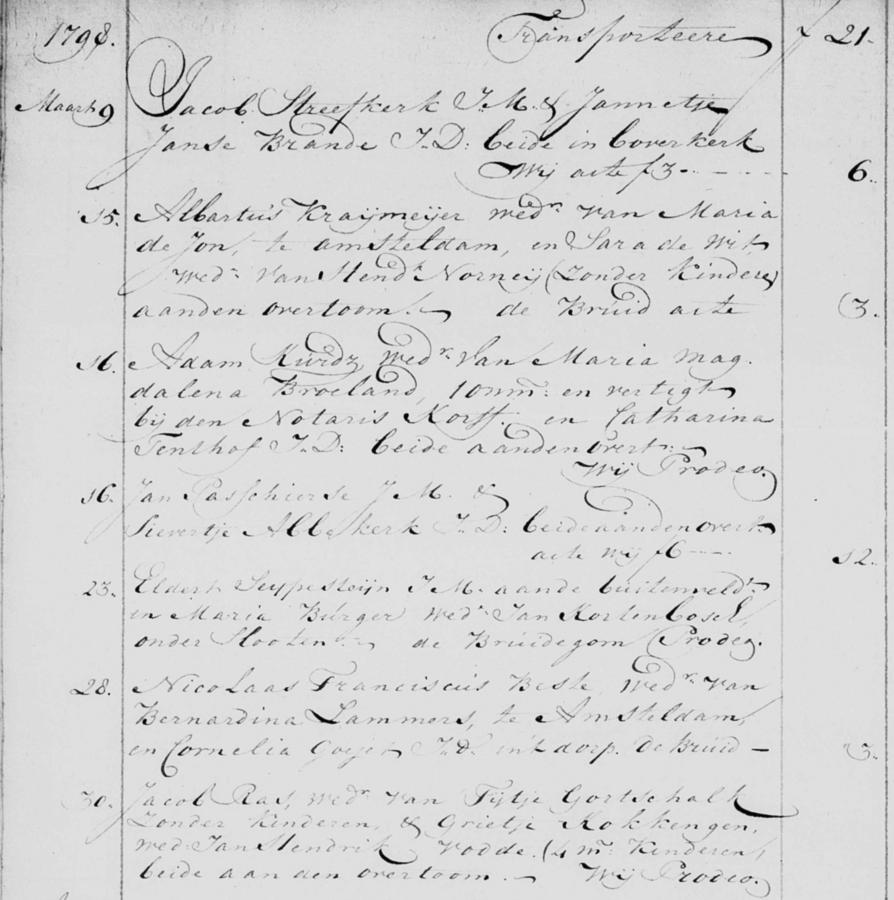 1798. Transporteere f 21.
Maart 9 Jacob Streefkerk J.M. & Jannetje
Janse Brande J.D: beide in boverkerk
Wij acte f3 - - - - - 6.
15. Albartus Kraijmeijer wedr. van Maria
de Jon, te amsteldam, en Sara de Wit,
wed. van Hendk Norneij (Zonder Kindere)
aanden overtoom. de Bruid acte (3.
16. Adam Kurdz wedr. van Maria mag.
dalena Broeland, en vertigt
bij den Notaris Korff. en Catharina
Tenthof J.D: beide aanden overt:
Wij Prodeo.
16. Jan Passchierse J.M. &
Sievertje Abbekerk J.D: beide aanden overt.
acte wij f6 - - - 12.
23. Eldert Seypesteijn J.M. aande buitenveldt
en Maria Burger wed. Jan Kortenbosel,
onder Slooten. de Bruidegom (Prodeo.
28. Nicolaas Franciscus Beste, wedr. van
Bernardina Lammers, te Amsteldam,
en Cornelia Goijer J.d. int dorp. De Bruid - 3.
30. Jacob Ras, wedr. van Tijtje Gortschalk
Zonder kinderen, & Grietje Kokkengen,
wed. Jan Hendrik Vodde. (4 m: Kinderen)
beide aan den overtoom. - Wij Prodeo.